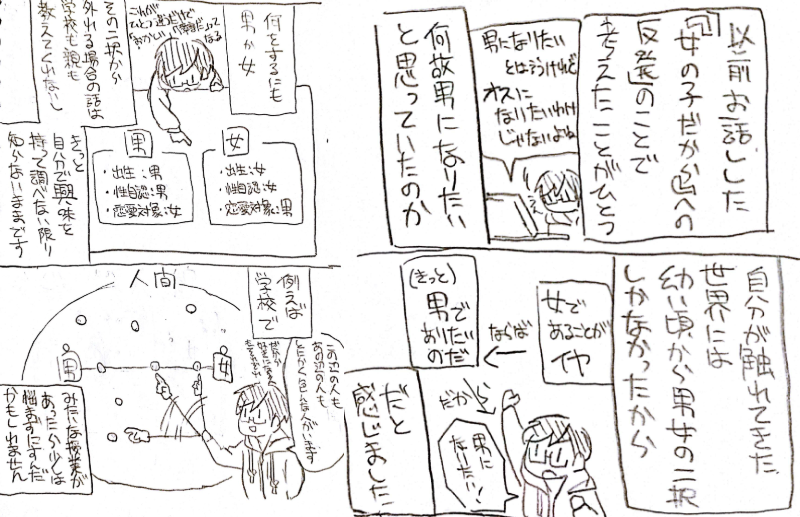 以前お話しした
「女の子だから」への
反発のことで
考えたことがひとつ
男になりたい
とは言うけれど
オスに
なりたいわけ
じゃないよね
何故男になりたい
と思っていたのか
自分が触れてきた
世界には
幼い頃から男女の二択
しかなかったから
女で
あることが
イヤ
ならば
(きっと)
男で
ありたい
のだ
だから
男に
なりたい!
だと
感じました
何をするにも
男か女
これが
ひとつ違うだけで
「おかしい」「異常だ」って
なる
男
・出生:男
・性自認:男
・恋愛対象:女
女
・出生:女
・性自認:女
・恋愛対象:男
その二択から
外れる場合の話は
学校も親も
教えてくれないし
きっと
自分で興味を
持って調べない限り
知らないままです
例えば
学校で
人間
男
女
この辺の人も
あの辺の人も
とにかくいろんな人がいます
みたいな授業が
あったら少しは
悩まずにすんだ
かもしれません